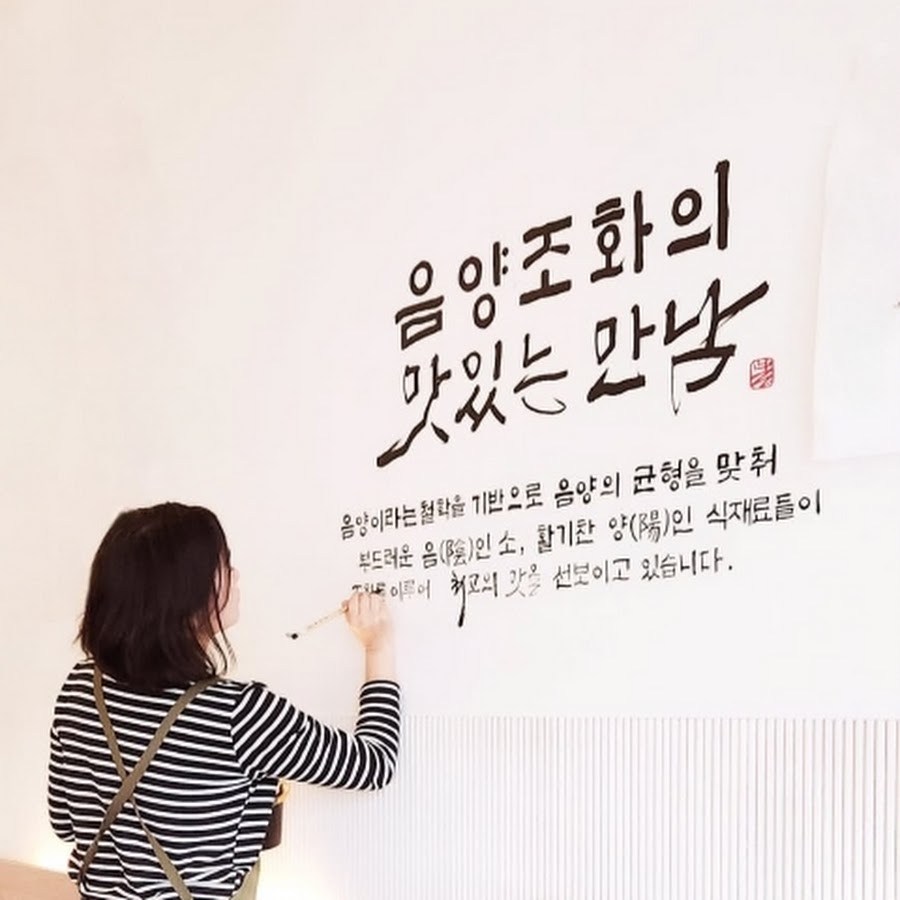 음양조화의
맛있는 만남
음양이라는 철학을 기반으로 음양의 균형을 맞춰
부드러운 음(陰)인 소, 활기찬 양(陽)인 식재료들이
이루어 최고의 맛을 선보이고 있습니다.